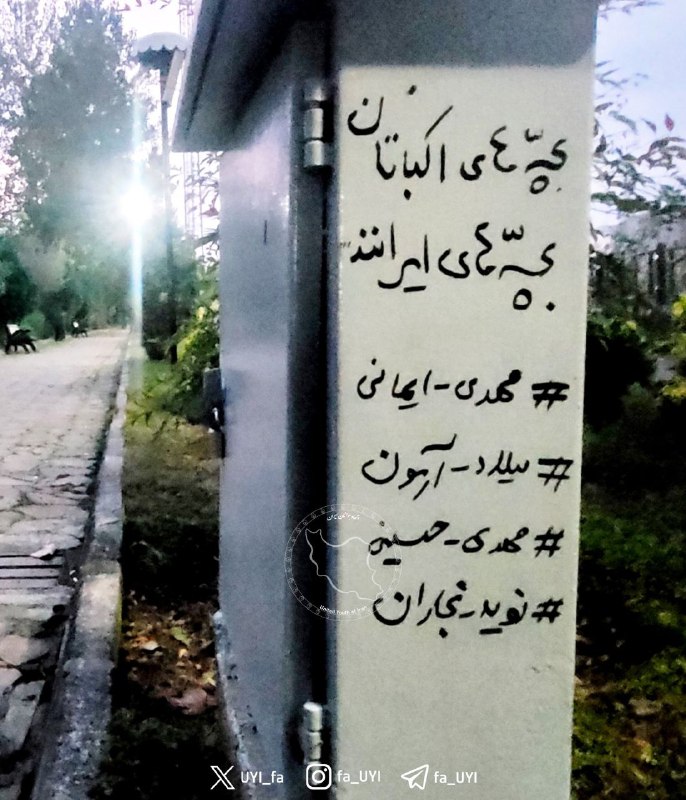 بچّه های اکباتان
بچّه های ایرانند
#مهدی-ایمانی
#میلاد-آرمون
#مهدی-حسینی
#نوید-نجاران
United Youth of Iran
UYI_fa
fa_UYI
fa_UYI